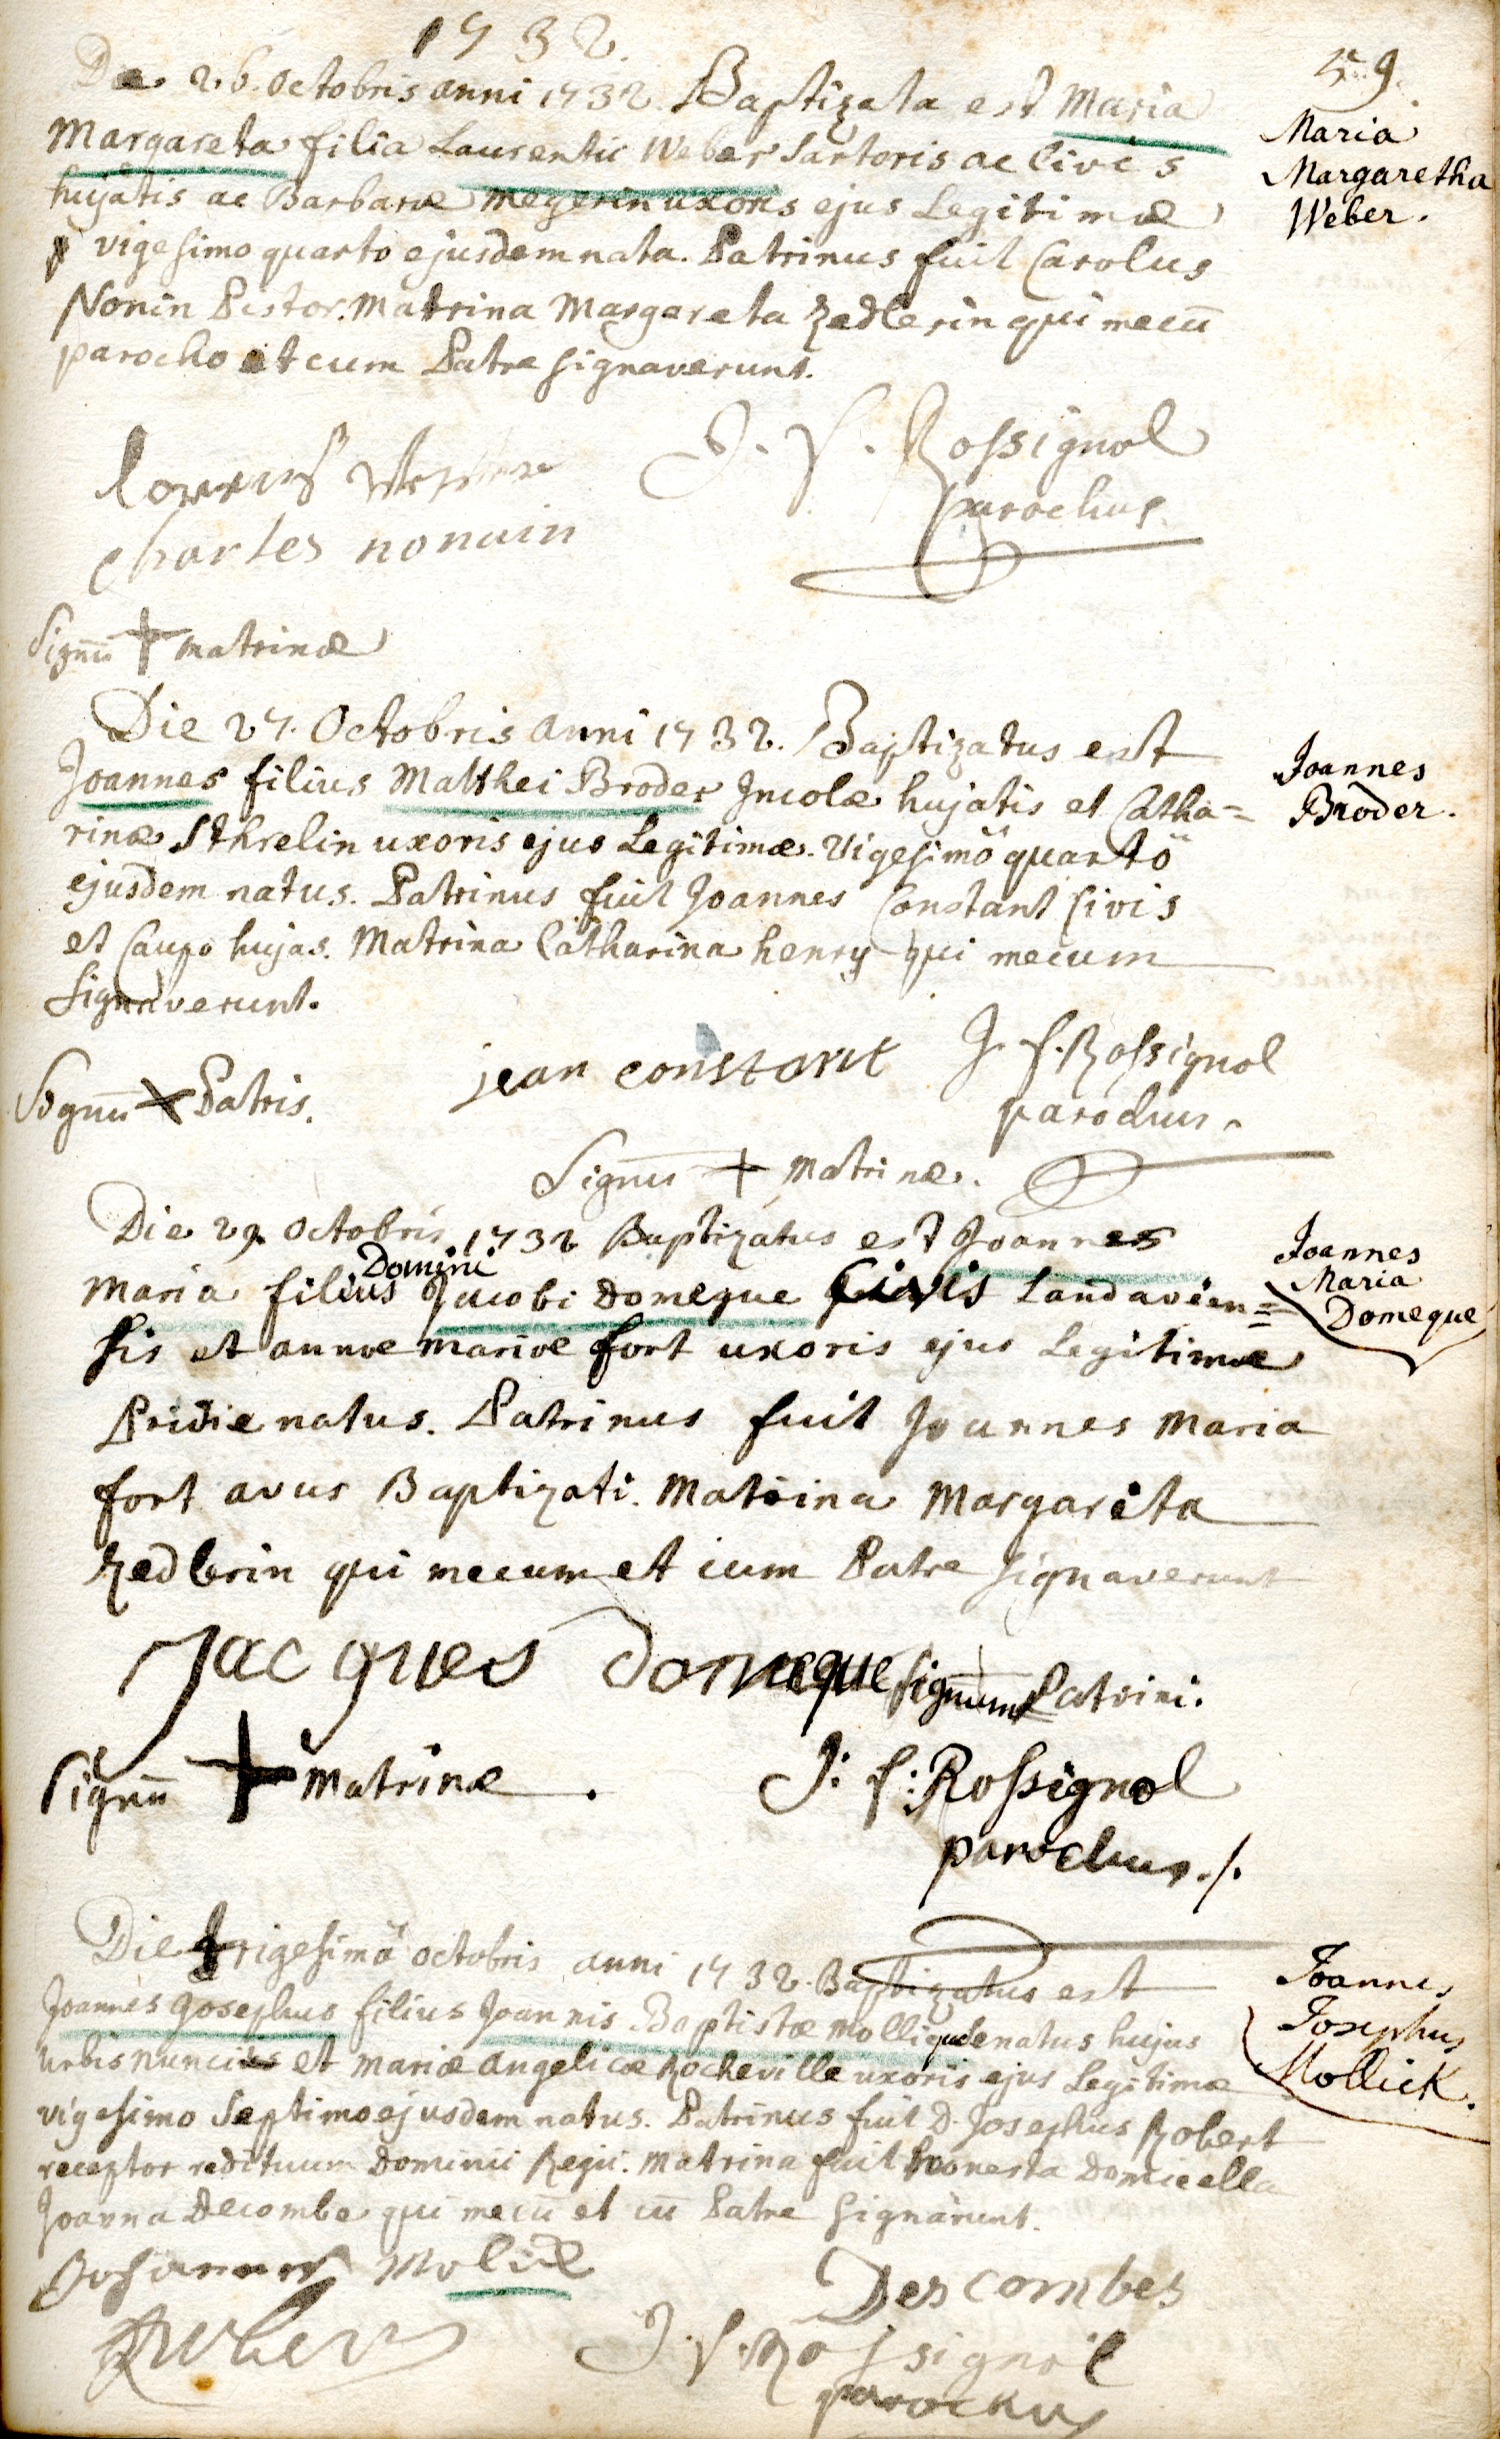 1732.
Die 26. Octobris anni 1732. Baptizata est Maria
Margareta filia Laurentii Weber Sartoris ac Civis
hujatis ac Barbaræ Meyerin uxoris ejus Legitimæ
vigesimo quarto ejusdem nata. Patrinus fuit Carolus
Nonin Pistor. Matrina Margareta Zedlerin qui mecū
parocho et cum Patre signaverunt.
Maria
Margaretha
Weber.
J. f. Rossignol
parochus
charles nonnin
Signū + matrinæ
Die 27. Octobris anni 1732. Baptizatus est
Joannes filius Matthei Broder Incolæ hujatis et Catha=
rinæ Sthrelin uxoris ejus Legitimæ. Vigesimô quartô
ejusdem natus. Patrinus fuit Joannes Constant Civis
et Caupo hujas. Matrina Catharina henry qui mecum
signaverunt.
Joannes
Broder.
Signū + Patris.
jean constant
J. f. Rossignol
parochus.
Signū + Matrinæ.
Die 29. Octobris 1732 Baptizatus est Joannes
Domini
Maria filius Jacobi Domeque Civis Landavien=
sis et annæ mariæ fort uxoris ejus Legitimæ
Pridie natus. Patrinus fuit Joannes Maria
fort avus Baptizati. Matrina Margareta
Zedlerin qui mecum et cum Patre signaverunt
Joannes
Maria
Domeque
Jacques domeque
Signum Patrini.
Signū + Matrinæ.
J: f: Rossignol
parochus ./.
Die trigesimâ octobris anni 1732. Baptizatus est
Joannes Josephus filius Joannis Baptistæ Mollique senatus hujus
urbis nuncii et Mariæ Angelicæ Rocheville uxoris ejus Legitimæ
vigesimo Septimo ejusdem natus. Patrinus fuit D. Josephus Robert
receptor redituum Dominii Regii. Matrina fuit honesta Domicella
Joanna Decombe qui mecū et cū Patre signârunt.
Joannes
Josephus
Mollick.
Johannes Molick
Des combes
J. f. Rossignol
parochus